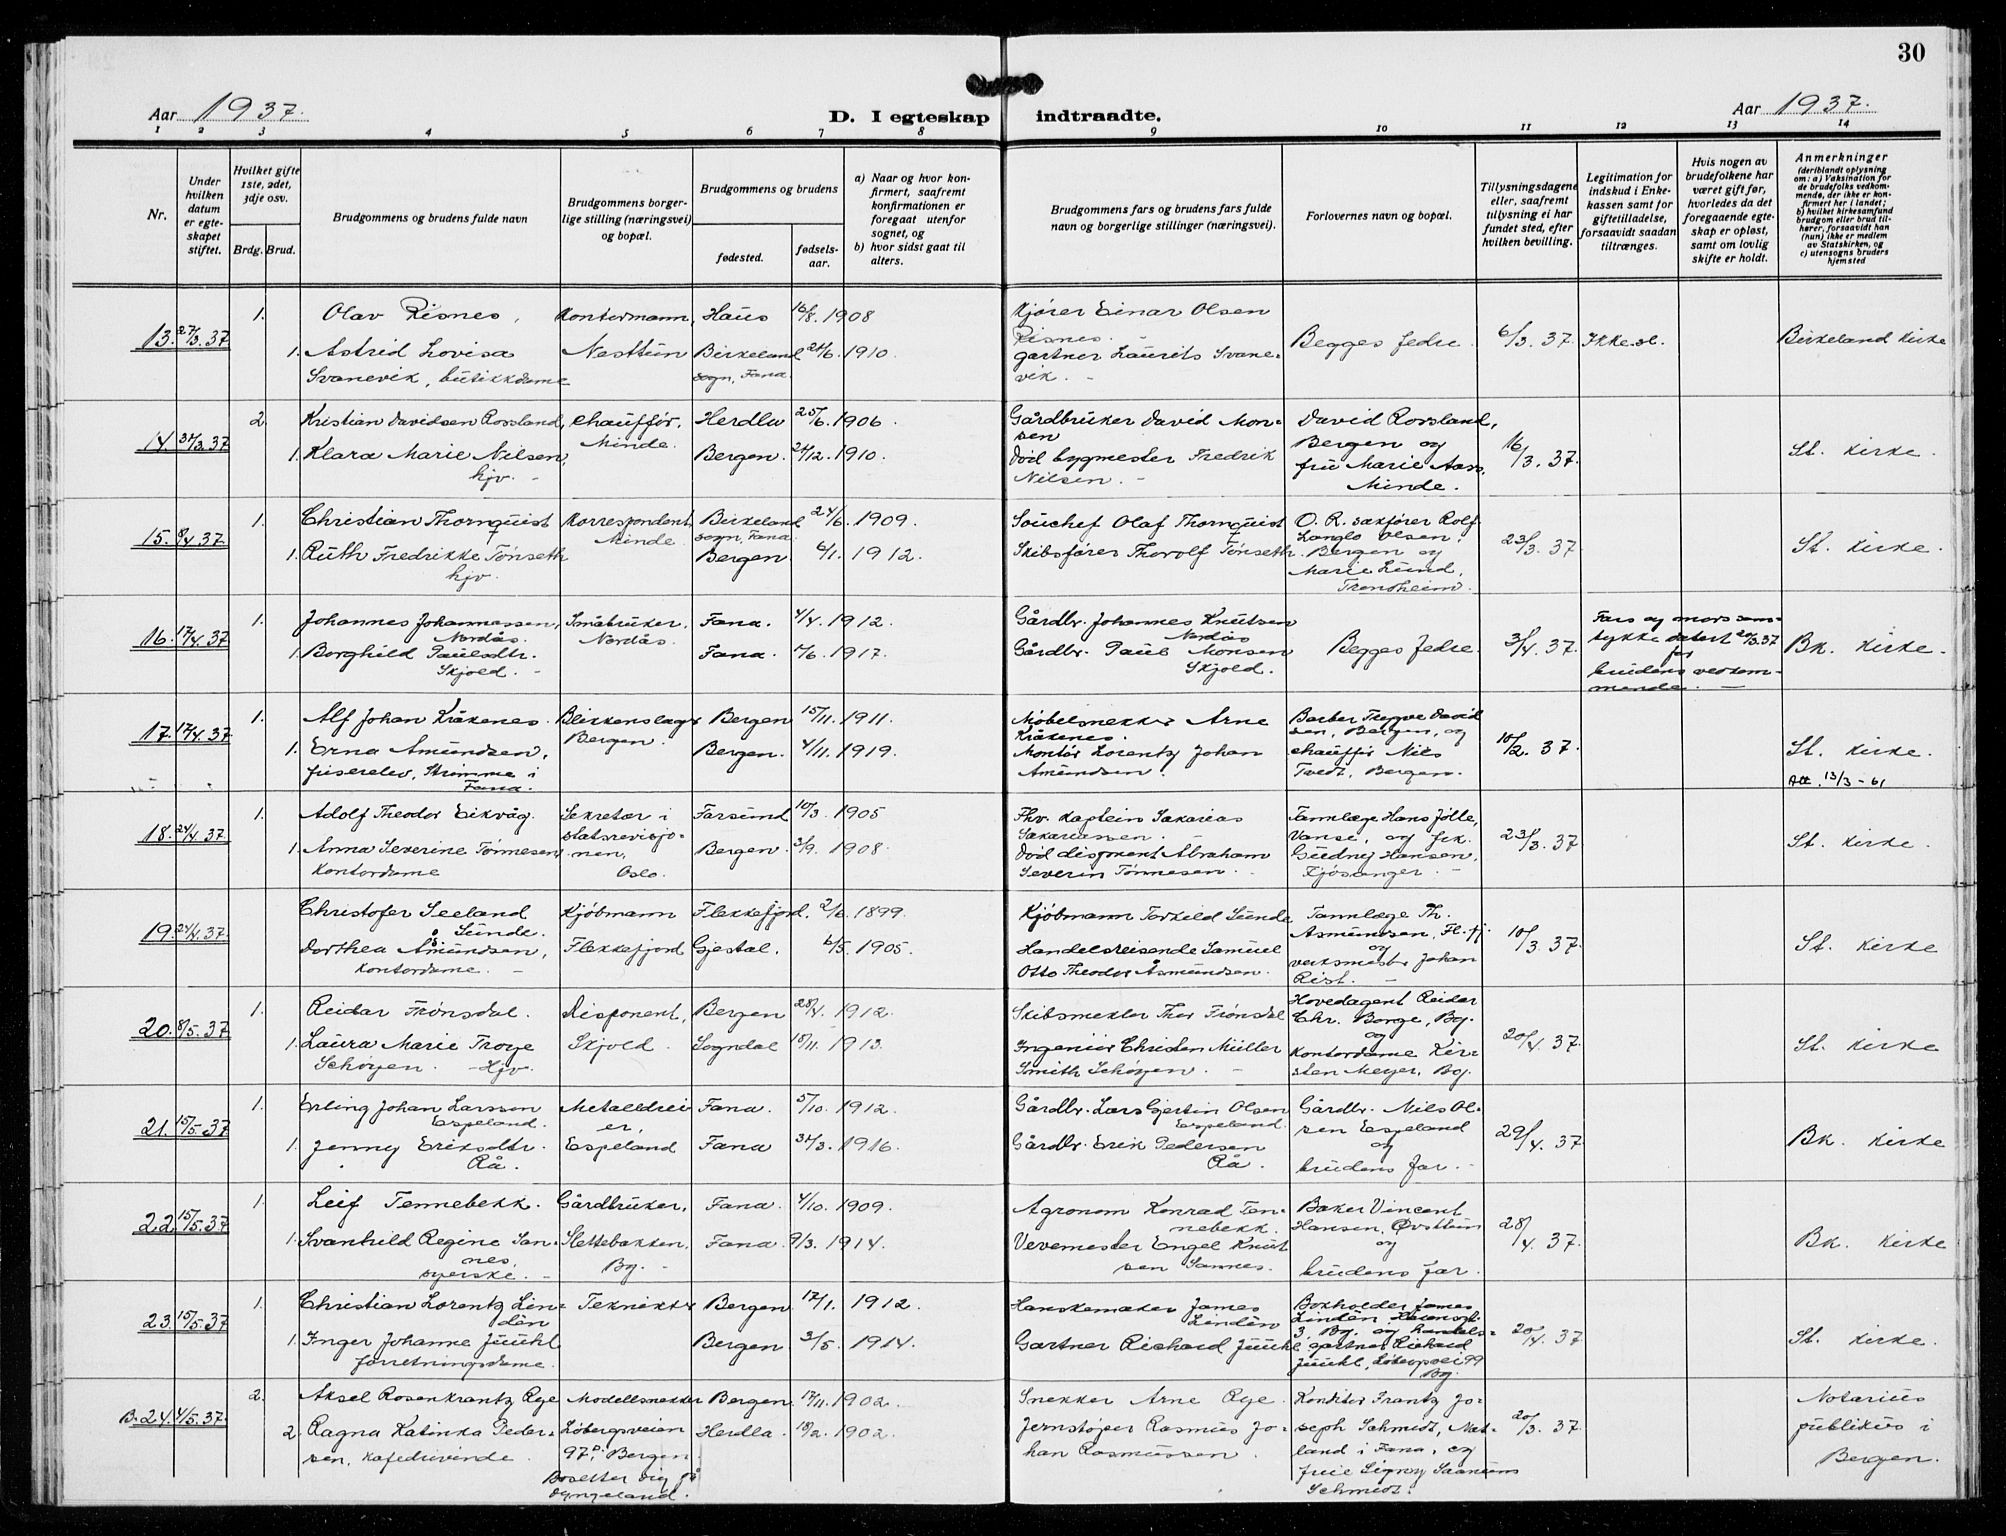 30
Aar 1937.
D. I egteskap indtraadte.
Aar 1937.
1 2 3 4 5 6 7 8 9 10 11 12 13 14
Nr.
Under hvilken datum er egteskapet stiftet.
Hvilket gifte 1ste, 2det, 3dje osv.
Brdg. Brud.
Brudgommens og brudens fulde navn
Brudgommens borgerlige stilling (næringsvei) og bopæl.
Brudgommens og brudens
fødested.
fødselsaar.
a) Naar og hvor konfirmert, saafremt konfirmationen er foregaat utenfor sognet, og
b) hvor sidst gaat til alters.
Brudgommens fars og brudens fars fulde navn og borgerlige stillinger (næringsvei).
Forlovernes navn og bopæl.
Tillysningsdagene eller, saafremt tillysning ei har fundet sted, efter hvilken bevilling.
Legitimation for indskud i Enkekassen samt for giftetilladelse, forsaavidt saadan tiltrænges.
Hvis nogen av brudefolkene har været gift før, hvorledes da det foregaaende egteskap er opløst, samt om lovlig skifte er holdt.
Anmerkninger (deriblandt oplysning om: a) Vaksination for de brudefolks vedkommende, der ikke er konfirmert her i landet; b) hvilket kirkesamfund brudgom eller brud tilhører, forsaavidt han (hun) ikke er medlem av Statskirken, og c) utensogns bruders hjemsted
13. 27/3.37 1. Olav Risnes, Kontormann, Haus 16/8. 1908 Kjører Einar Olsen Risnes. Begges fedre. 6/3. 37. Ikke sl. Birkeland Kirke
1. Astrid Lovisa Svanevik, butikkdame Nesttun Birkeland sogn, Fana. 24/6. 1910. gartner Laurits Svanevik.
14. 31/3.37 2. Kristian Davidsen Rossland, chauffør, Minde. Herdla 25/6. 1906. Gårdbruker David Monsen David Rossland, Bergen og fru Marie Aass, Minde. 16/3. 37. St. Kirke.
1. Klara Marie Nilsen, hjv. Bergen. 24/12. 1910. Død bygmester Fredrik Nilsen.
15. 8/4.37 1. Christian Thornquist Korrespondent Minde. Birkeland sogn, Fana. 24/6. 1909. Souchef Olaf Thornquist O. R. sakfører Rolf Langlo Olsen, Bergen og Marie Lund, Trondheim. 23/3. 37 St. Kirke.
1. Ruth Fredrikke Tønseth hjv. Bergen. 6/1. 1912. Skibsfører Thorolf Tønseth.
16. 17/4.37 1. Johannes Johannessen, Nordås. Småbruker, Nordås. Fana. 4/4. 1912. Gårdbr. Johannes Knutsen Nordås Begges fedre. 3/4. 37. Fars og mors samtykke datert 20/3.37 for brudens vedkommende. Bk. Kirke.
1. Borghild Paulsdtr. Skjold. Fana. 1917. Gårdbr. Paul Monsen Skjold.
17. 17/4.37 1. Alf Johan Kråkenes. Blikkenslager Bergen. Bergen 15/11. 1911. Møbelsnekker Arne Kråkenes. Barber Trygve Davidsen, Bergen, og chauffør Nils Tvedt, Bergen. 10/2. 37. St. Kirke.
1. Erna Amundsen, friserelev, Strimme i Fana. Bergen. 4/11. 1919. Montør Lorentz Johan Amundsen. Att. 13/3-61
18. 24/4.37 1. Adolf Theodor Eikvåg. Sekretær i statsrevisjonen, Oslo. Farsund 10/3. 1905 Fhv. kaptein Sakarias Sakariassen. Tannlæge Hans Jølle, Vanse, og frk. Gudny Hansen, Kjøsanger. 23/3. 37 St. Kirke.
1. Anna Severine Tønnesen, Kontordame Bergen. 3/9. 1908. Død disponent Abraham Severin Tønnesen.
19. 24/4.37. Christofer Seeland Sunde. Kjøbmann Flekkefjord Flekkefjord. 2/6. 1899. Kjøbmann Torkild Sunde Tannlæge Th. Asmundsen, Fl.fj. og verksmester Johan Rist. 10/3. 37. St. Kirke
Dorthea Åsmundsen, Kontordame. Gjestal. 6/5. 1905. Handelsreisende Samuel Otto Theodor Åsmundsen.
20. 8/5.37 1. Reidar Frønsdal. Disponent, Skjold. Bergen 28/4. 1912. Skibsmekler Thor Frønsdal Hovedagent Reidar Chr. Borge, Bg. og Kontordame Kirsten Meyer, Bg. 20/4. 37. St. Kirke
1. Laura Marie Troye Schøyen. Hjv. Sogndal 18/11. 1913. Ingeniør Christen Müller Smith Schøyen.
21. 15/5.37 1. Erling Johan Larssen Espeland. Metalldreier, Espeland Fana. 5/10. 1912. Gårdbr. Lars Gjertin Olsen Espeland. Gårdbr. Nils Olsen Espeland og brudens far. 29/4. 37 Bk. Kirke
1. Jenny Eriksdtr. Rå. Fana 31/3. 1916. Gårdbr. Erik Pedersen Rå.
22. 15/5.37 1. Leif Tennebekk. Gårdbruker, Slettebakken, Bg. Fana. 4/10. 1909. Agronom Konrad Tennebekk. Baker Vincent Hansen, Øvsttun og brudens far. 28/4. 37. Bk. Kirke
1. Svanhild Regine Sannes, syerske. Fana. 9/3. 1914. Vevemester Engel Knutsen Sannes.
23. 15/5.37 1. Christian Lorentz Lindén Tekniker Bergen 17/1. 1912. Hanskemaker James Lindén Bokholder James Lindén 3, Bg. og handelsgartner Richard Juuhl, Løbergsvei 99 Bg. 20/4. 37 St. Kirke.
1. Inger Johanne Juuhl forretningsdame. Bergen 3/5. 1914. Gartner Richard Juuhl
B. 24. 4/5.37. 2. Aksel Rosenkrantz Rye Modellsnekker Løbergsveien 97D, Bergen. Bosetter sig på Dyngeland. Bergen. 17/11. 1902. Snekker Arne Rye. Konditor Frantz Joseph Schmidt, Natland i Fana, og fru Signy Saanum Schmidt. 20/3. 37. Notarius publikus i Bergen.
2. Ragna Katinka Pedersen, kafedrivende. Herdla. 18/2. 1902. Jernstøper Rasmus Johan Rasmussen.